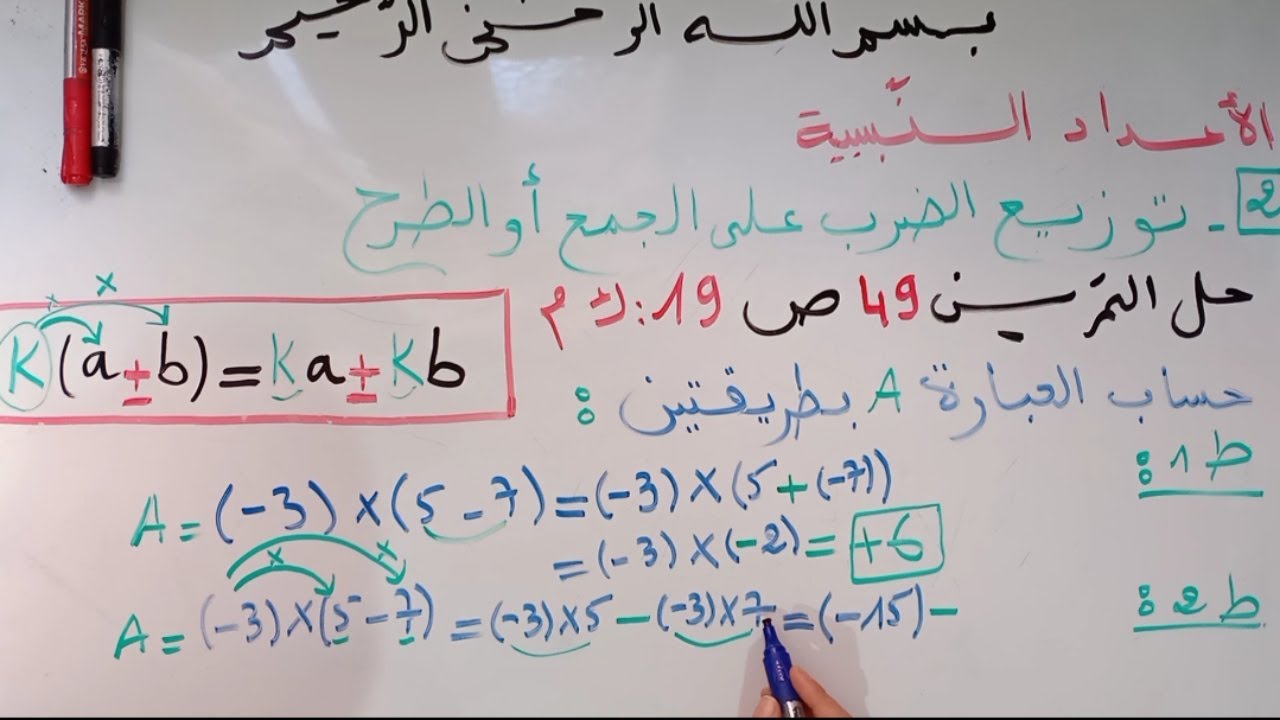 بسم الله الرحمن الرحيم
الأعداد النسبية
2 - توزيع الضرب على الجمع أو الطرح
حل التمرين 49 ص 19 : ك م
K(a ± b) = Ka ± Kb
حساب العبارة A بطريقتين :
ط 1 :
A = (-3) × (5 - 7) = (-3) × (5 + (-7))
= (-3) × (-2) = +6
ط 2 :
A = (-3) × (5 - 7) = (-3) × 5 - (-3) × 7 = (-15) -